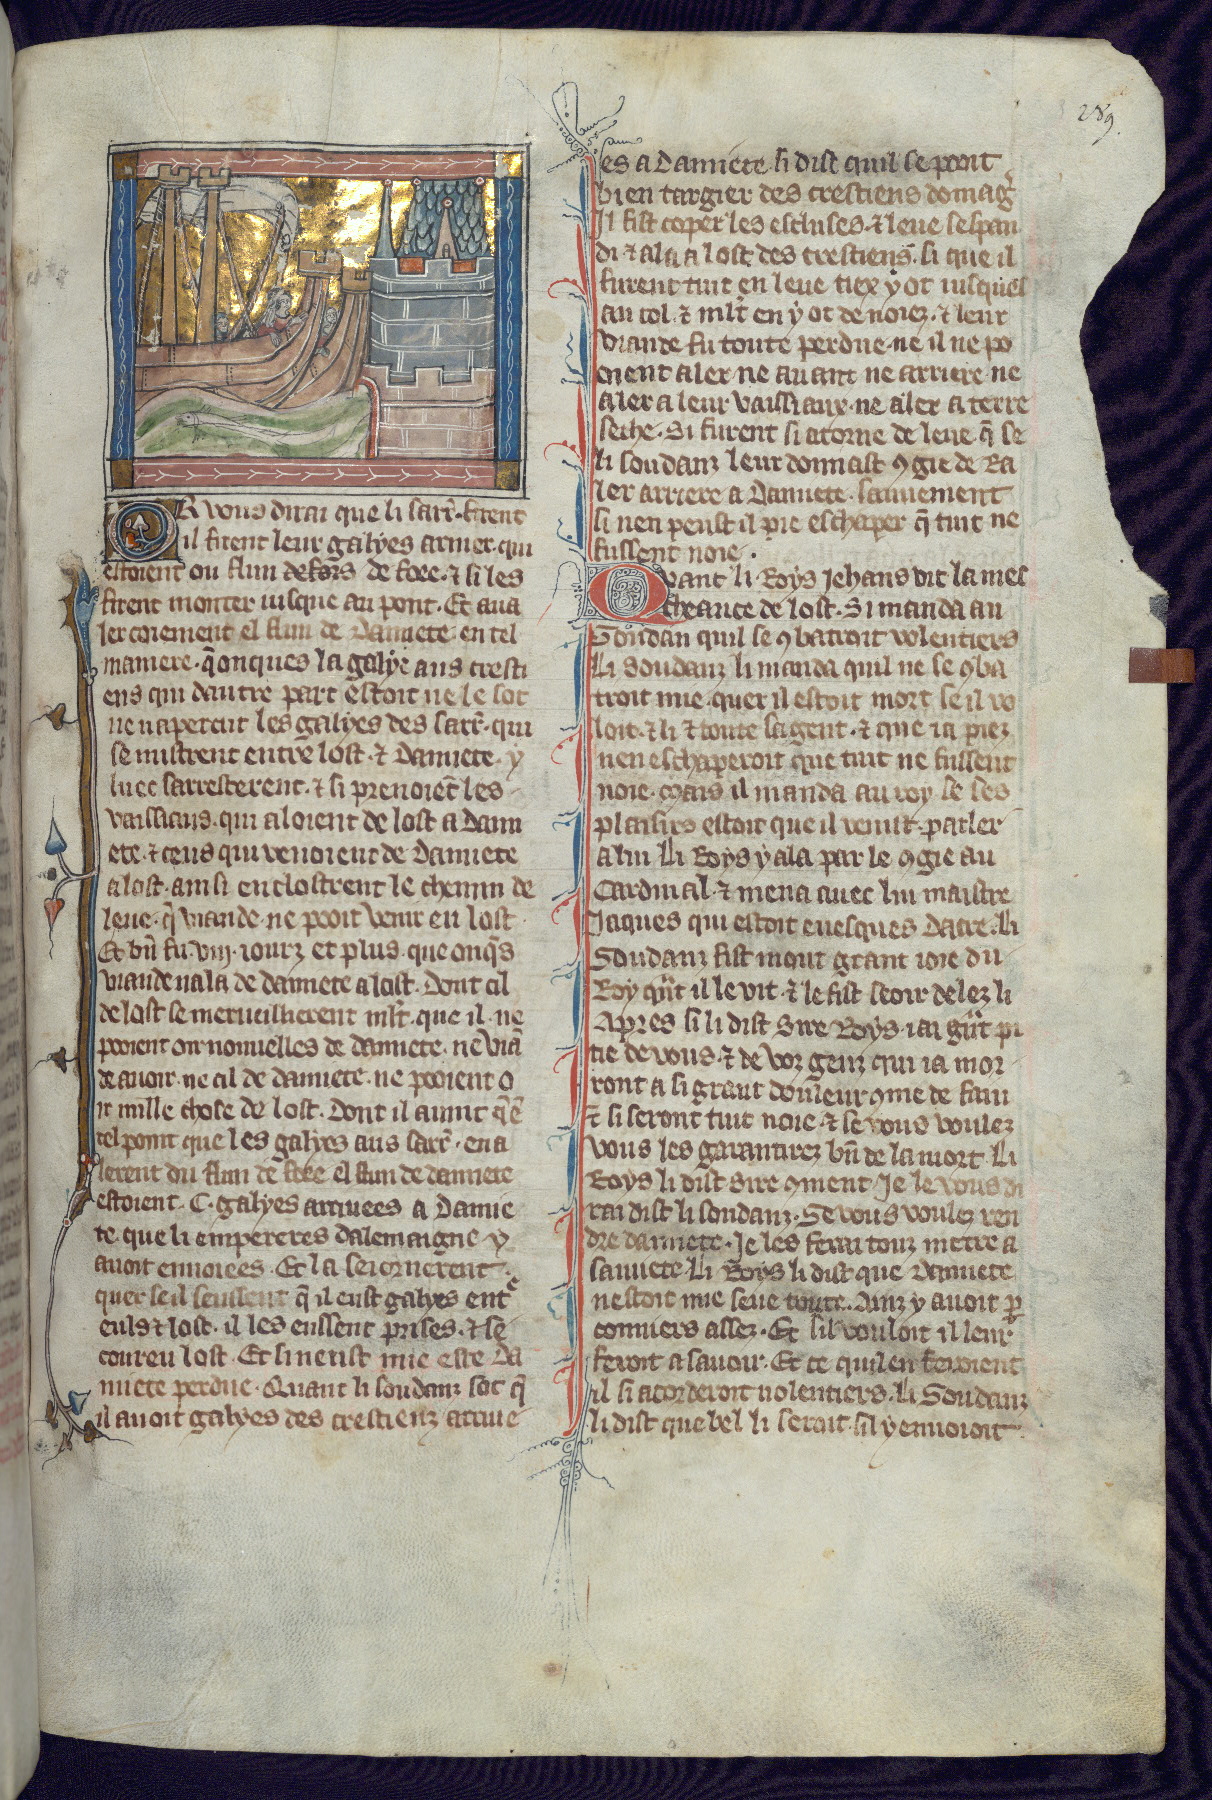 289.
OR vous dirai que li sarr̃. firent
il firent leur galyes armer. qui
estoient ou flun defors de foee. ⁊ si les
firent monter iusque au pont. Et aua
ler coiement el flun de Damiete en tel
maniere. q̃ onques la galye aus cresti
ens qui dautre part estoit ne le sot
ne napercut les galyes des sarr̃. qui
se mistrent entre lost. ⁊ Damiete. y
luec sarresterent. ⁊ si prenoiẽt les
vaissiaus. qui aloient de lost a Dami
ete. ⁊ ceus qui venoient de Damiete
a lost. ainsi enclostrent le chemin de
leue. q̃ viande. ne pooit venir en lost.
Et bñ fu. viij. iourz et plus. que onq̃s
viande nala de damiete a lost. Dont cil
de lost se merueillierent ml̃t. que il. ne
pooient oir nouuelles de damiete. ne viã
de auoir. ne cil de damiete. ne pooient o
ir nulle chose de lost. Dont il auint q̃ ẽ
tel point que les galyes aus sarr̃. en a
lerent du flun de foee el flun de damiete
estoient. C. galyes arriuees a Damie
te. que li empereres dalemaigne y
auoit enuoiees. Et la seiornerent.
quer se il seussent q̃ il eust galyes entͤ
euls ⁊ lost. il les eussent prises. ⁊ se
coureu lost. Et si neust mie este Da
miete perdue. Quant li soudanz sot q̃
il auoit galyes des crestienz arriue
es a Damiete. si dist quil se pooit
bien targier des crestiens domag̾
Il fist coper les escluses. ⁊ leue sespan
di ⁊ ala a lost des crestiens. si que il
furent tuit en leue tiex y ot iusques
au col. ⁊ ml̃t en y ot de noiez. ⁊ leur
viande fu toute perdue. ne il ne po
oient aler. ne auant ne arriere ne
aler a leur vaissiaux. ne aler a terre
seche. Si furent si atorne de leue. q̃ se
li soudanz leur donnast ꝯgie de Ra
ler arriere a Damiete. sauuement
si nen peust il pie eschaper q̃ tuit ne
fussent noie.
Quant li Roys Jehans vit la mes
cheance de lost. Si manda au
Soudan quil se ꝯbatroit volentiers
Li Soudanz li manda quil ne se ꝯba
troit mie. quer il estoit mort se il vo
loit. ⁊ li ⁊ toute sa gent. ⁊ que ia piez
nen eschaperoit que tuit ne fussent
noie. Mais il manda au roy. se ses
plaisirs estoit que il venist. parler
a lui Li Roys y ala par le ꝯgie au
Cardinal. ⁊ mena auec lui maistre
Jaques qui estoit euesques Dacre. Li
Soudanz fist mout grant ioie du
Roy qũt il le vit. ⁊ le fist seoir delez li
Apres si li dist Sire Roys. iai gũt pi
tie de vous. ⁊ de voz genz qui ia mor
ront a si grant douleur ꝯme de fain
⁊ si seront tuit noie. ⁊ se vous voulez
vous les garantirez bñ de la mort. Li
Roys li dist Sire ꝯment Je le vous di
rai dist li soudanz. Se vous voulez ren
dre damiete. Je les ferai touz metre a
sauuete Li Roys li dist que Damiete
nestoit mie seue toute. Ainz y auoit ꝑ
conniers assez. Et sil vouloit il leur
feroit a sauoir. Et ce quil en feroient
il si acorderoit uolentiers. Li Soudanz
li dist que bel li seroit. sil y enuoioit